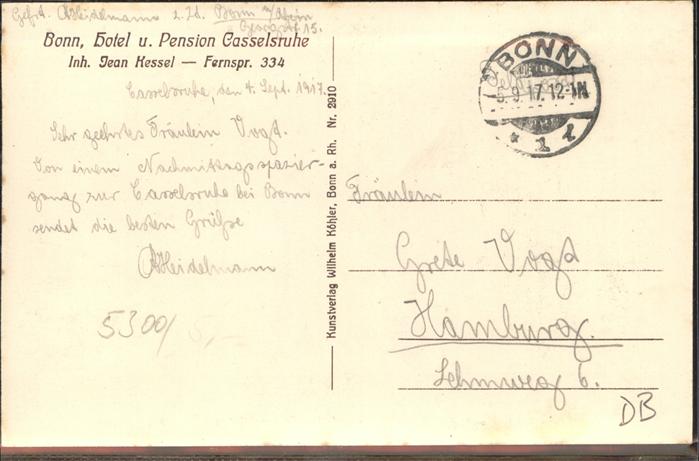 Gefr. A Heidelmann z. Zt. Bonn a/Rhein
15.
Bonn, Hotel u. Pension Casselsruhe
Inh. Jean Kessel — Fernspr. 334
Casselsruhe, den 4. Sept. 1917.
Sehr geehrtes Fräulein Vogt.
Von einem Nachmittagsspazier-
gang zur Casselsruhe bei Bonn
sendet die besten Grüße
A Heidelmann
5300/ 5,-
Kunstverlag Wilhelm Köhler, Bonn a. Rh. Nr. 2910
BONN
5.9.17. 12-1N
* 1 l
Fräulein
Grete Vogt
Hamburg.
Lehmweg 6.
DB